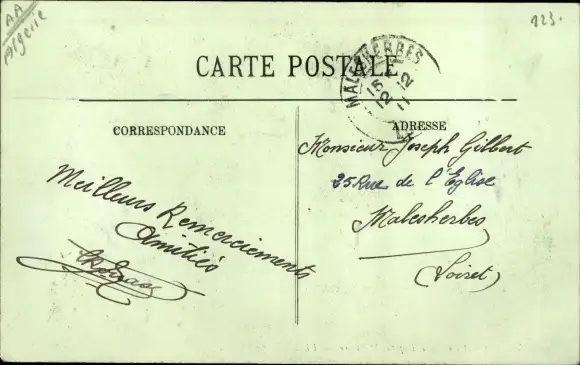 AA
Algérie
123.
CARTE POSTALE
MALESHERBES
15
12
CORRESPONDANCE
ADRESSE
Meilleurs Remerciements
Amitiés
Monsieur Joseph Gilbert
25 Rue de l'Eglise
Malesherbes
(Loiret)